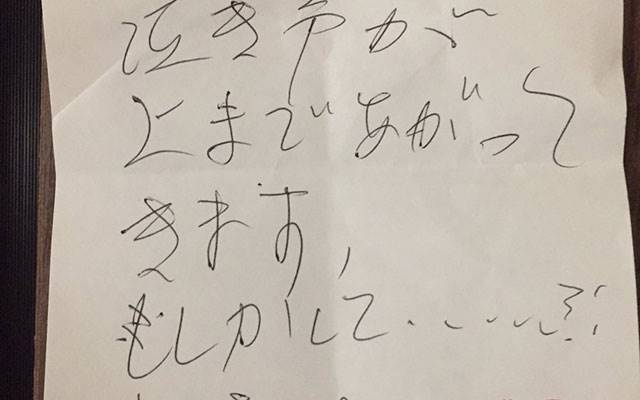 泣き声が
上まであがって
きます,
もしかして